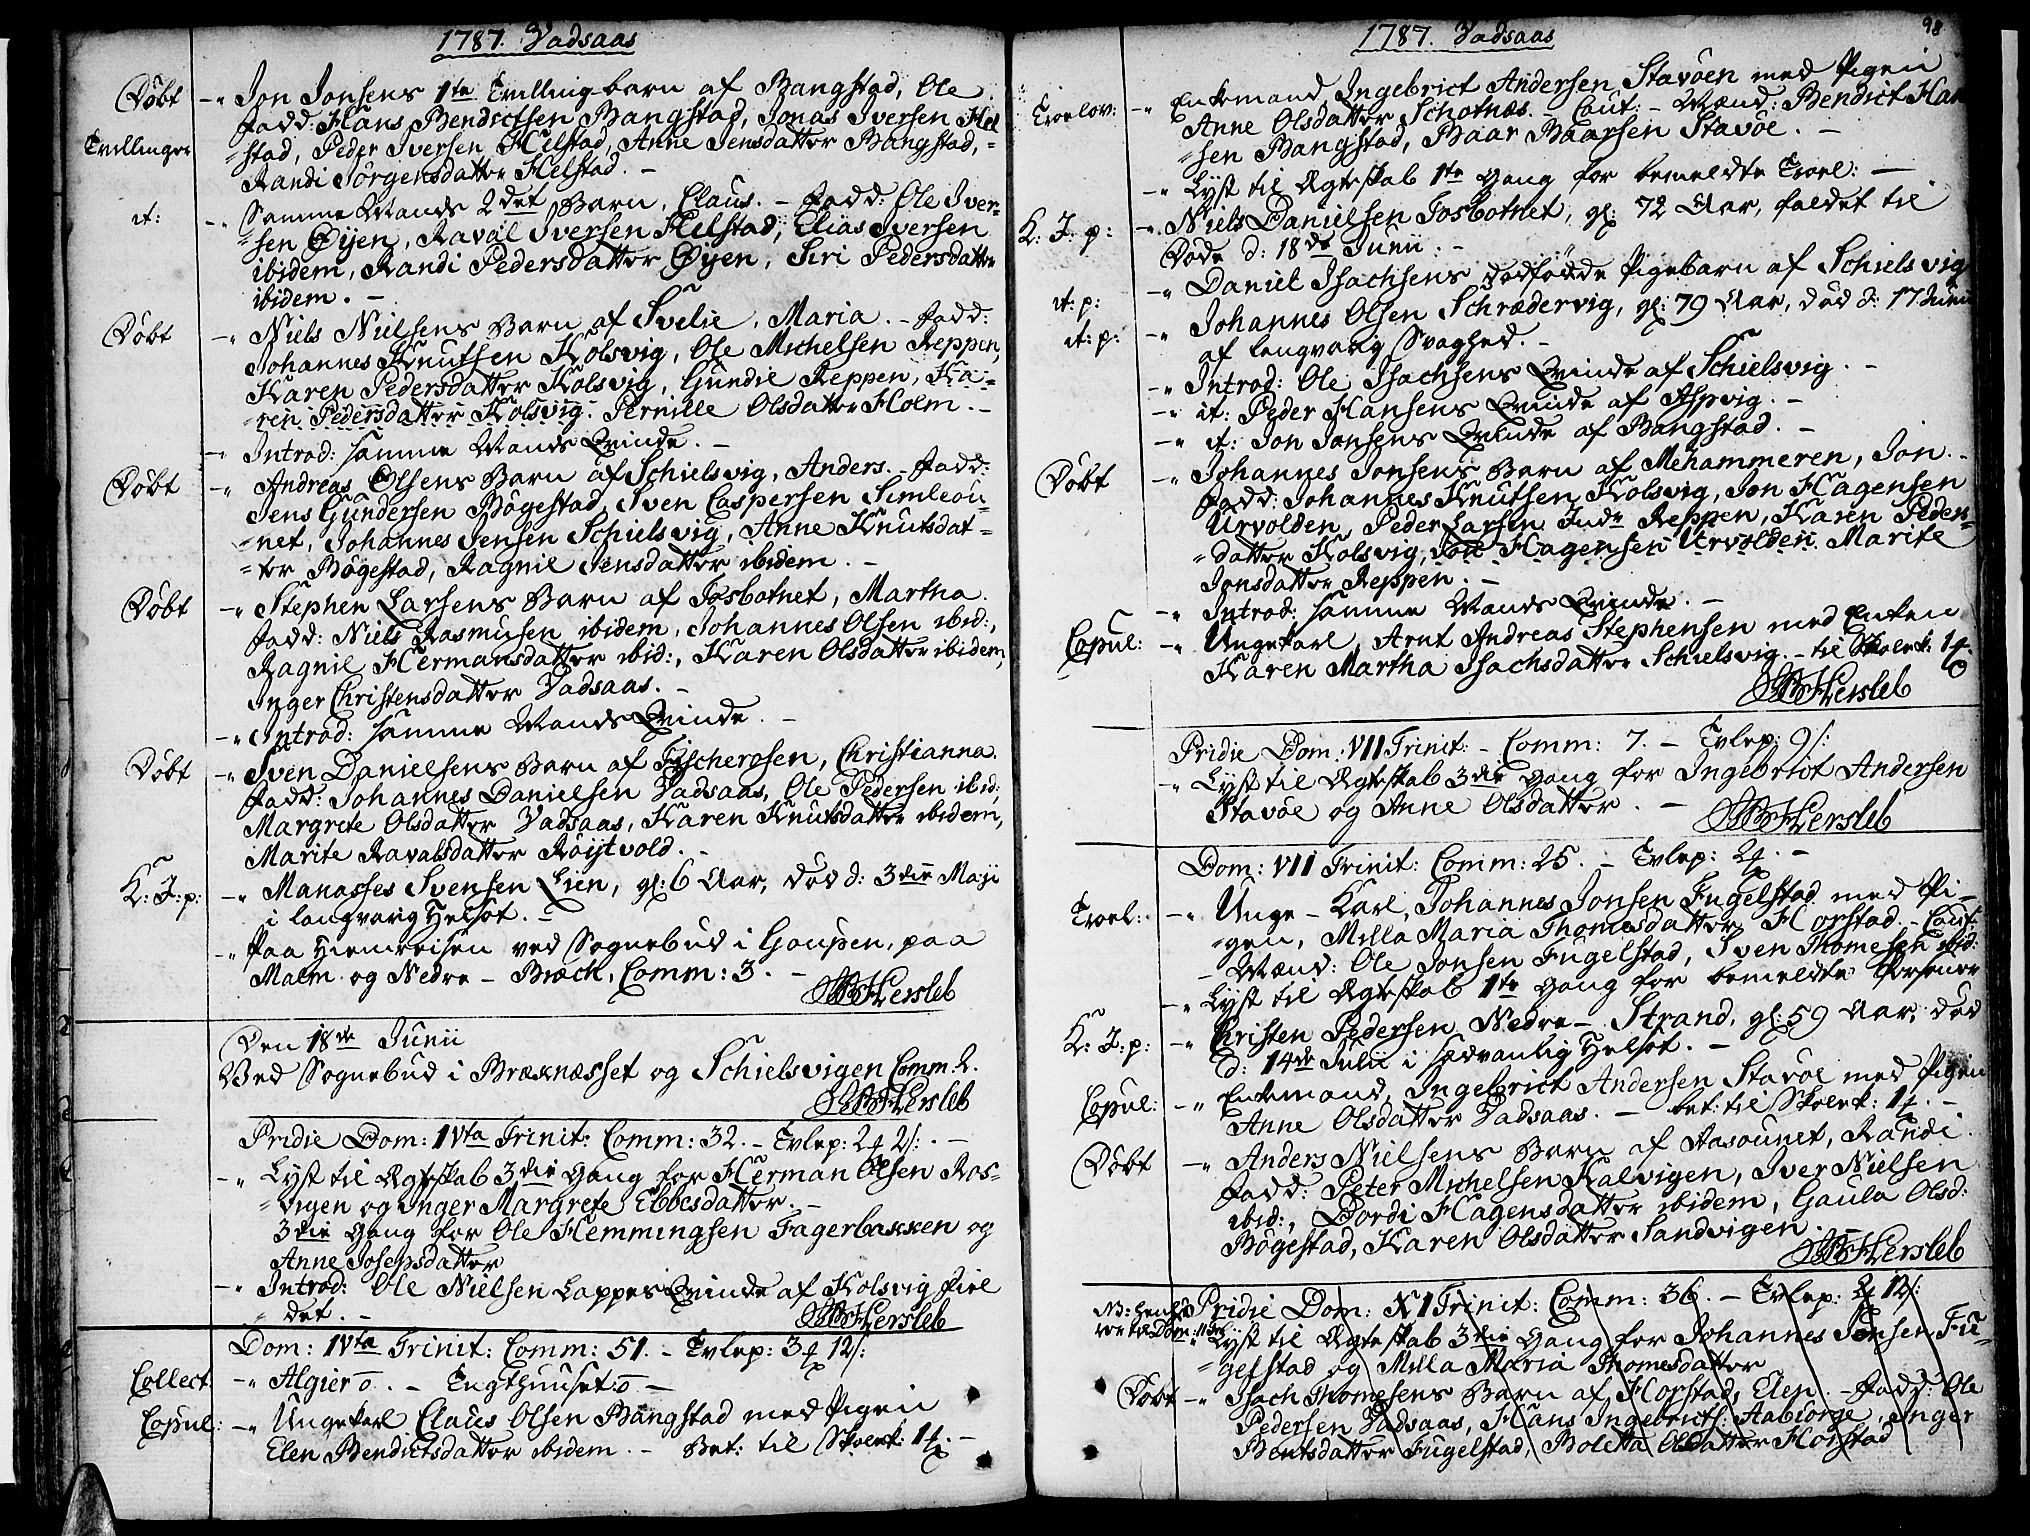 1787. Vadsaas
Döbt -„ Jon Jonsens 1te Tvilling-barn af Bangstad, Ole
Fadd: Hans Bendictsen Bangstad, Jonas Iversen Hel
Tvillinger =stad, Peder Iversen Helstad, Anne Jensdatter Bangstad,-
Randi Jörgensdatter Helstad. -
it: -„ Samme Mands 2det Barn, Claus. - Fadd: Ole Iver-
=sen Øijen, Raval Iversen Helstad, Elias Iversen
ibidem, Randi Pedersdatter Øijen, Siri Pedersdatter
ibidem. -
Döbt -„ Niels Nielsens Barn af Svelie, Maria. - Fadd:
Johannes Knutsen Kolsvig, Ole Michelsen Reppen,
Karen Pedersdatter Kolsvig, Gundie Reppen, Ka-
ren Pedersdatter Kolsvig. Pernille Olsdatter Holm. -
-„ Introd: samme Mands Qvinde. -
Döbt -„ Andreas Olsens Barn af Schielsvig, Anders. - Fadd:
Jens Gundersen Bögestad, Sven Caspersen Simleou-
=net, Johannes Jensen Schielsvig, Anne Knutsdat-
=ter Bögestad, Ragnil Jensdatter ibidem. -
Döbt -„ Stephen Larsens Barn af Fosbotnet, Martha.
Fadd: Niels Rasmusen ibidem, Johannes Olsen ibid:,
Ragnil Hermansdatter ibid:, Karen Olsdatter ibidem,
Inger Christensdatter Vadsaas. -
-„ Introd: samme Mands Qvinde. -
Döbt -„ Sven Danielsens Barn af Fischerosen, Christianna.
Fadd: Johannes Danielsen Vadsaas, Ole Pedersen ibid:
Margrete Olsdatter Vadsaas, Karen Knutsdatter ibidem,
Marite Ravalsdatter Röijtvold. -
K: J: p: -„ Manasses Svensen Lien, gl: 6 Aar, död d: 3die Maji
i langvarig Helsot. -
-„ Paa Hiemreisen ved Sognebud i Goupen, paa
Malm og Nedre-Bræck, Comm: 3. -
Hersleb
Den 18de Junii
Ved Sognebud i Bræknæsset og Schielsvigen Comm. 2.
Hersleb
Pridie Dom: IVta Trinit: Comm: 32. - Tvlep: 2 2/: -
-„ Lyst til Ægteskab 3die Gang for Herman Olsen Ros-
=vigen og Inger Margrete Ebbesdatter. -
3die Gang for Ole Hemmingsen Fagerbakken og
Anne Josepsdatter
-„ Introd: Ole Nielsen Lappes Qvinde af Kolsvig Fiel
det. -
Hersleb
Dom: IVta Trinit: Comm: 51. - Tvlep: 3 12/:
Collect -„ Algier o. - Tugthuuset: o -
Copul: -„ Ungekarl Claus Olsen Bangstad med Pigen
Elen Bendictsdatter ibidem. - Bet: til Skolek: 1. -
1787. Vadsaas
98
Troelov: -„ Enkemand Ingebrict Andersen Stavöen med Pigen
Anne Olsdatter Schotnæs. - Caut: - Mænd: Bendict Han
=sen Bangstad, Baar Baarsen Stavöe. -
-„ Lyst til Ægteskab 1te Gang for bemeldte Troel: -
K: J: p: -„ Niels Danielsen Fosbotnet, gl: 72 Aar, faldet til
Döde d: 18de Junii. -
it: p: -„ Daniel Isachsens dödfödde Pigebarn af Schielsvig
it: p: -„ Johannes Olsen Schrædervig, gl: 79 Aar, död d: 17 Junii
af langvarig Svaghed. -
-„ Introd: Ole Isachsens Qvinde af Schielsvig. -
-„ it: Peder Hansens Qvinde af Aspvig. -
-„ it: Jon Jonsens Qvinde af Bangstad. -
Döbt -„ Johannes Jonsens Barn af Mehammeren, Jon. -
Fadd: Johannes Knutsen Kolsvig, Jon Hagensen
Urvolden, Peder Larsen Indr Reppen, Karen Peders-
=datter Kolsvig, Jon Hagensen Urvolden. Marite
Jonsdatter Reppen. -
-„ Introd: samme Mands Qvinde. -
Copul: -„ Ungekarl, Arnt Andreas Stephensen med Enken
Karen Martha Isachsdatter Schielsvig. - til Skolek: 1.
Hersleb
Pridie Dom: VII Trinit: - Comm: 7. - Tvlep: 9/:
-„ Lyst til Ægteskab 3die Gang for Ingebrict Andersen
Stavöe og Anne Olsdatter. -
Hersleb
Dom: VII Trinit: Comm: 25. - Tvlep: 2. -
Troel: -„ Unge-Karl, Johannes Jonsen Fugelstad med Pi-
=gen, Milla Maria Thomesdatter Horstad. - Caut:
- Mænd: Ole Jonsen Fugelstad, Sven Thomesen ibid:
-„ Lyst til Ægteskab 1te Gang for bemeldte Personer
K: J: p: -„ Christen Pedersen Nedre-Strand, gl: 59 Aar, död
d: 14de Julii i sædvanlig Helsot. -
Copul: -„ Enkemand, Ingebrict Andersen Stavöe med Pigen
Anne Olsdatter Vadsaas. - bet: til Skolek: 1. -
Döbt -„ Anders Nielsens Barn af Aasounet, Randi.
Fadd: Peter Michelsen Kalvigen, Iver Nielsen
ibid:, Dordi Hagensdatter ibidem, Gaula Olsd:
Bögestad, Karen Olsdatter Sandvigen. -
Hersleb
Pridie Dom: XI Trinit: Comm: 36. - Tvlep: 2 12/:
Lyst til Ægteskab 3die Gang for Johannes Jonsen Fu-
=gelstad og Milla Maria Thomesdatter
Döbt -„ Isach Thomesens Barn af Horstad, Elen. - Fadd: Ole
Pedersen Vadsaas, Hans Ingebricts: Aabiörge, Inger
Bentsdatter Fugelstad, Boletta Olsdatter Horstad